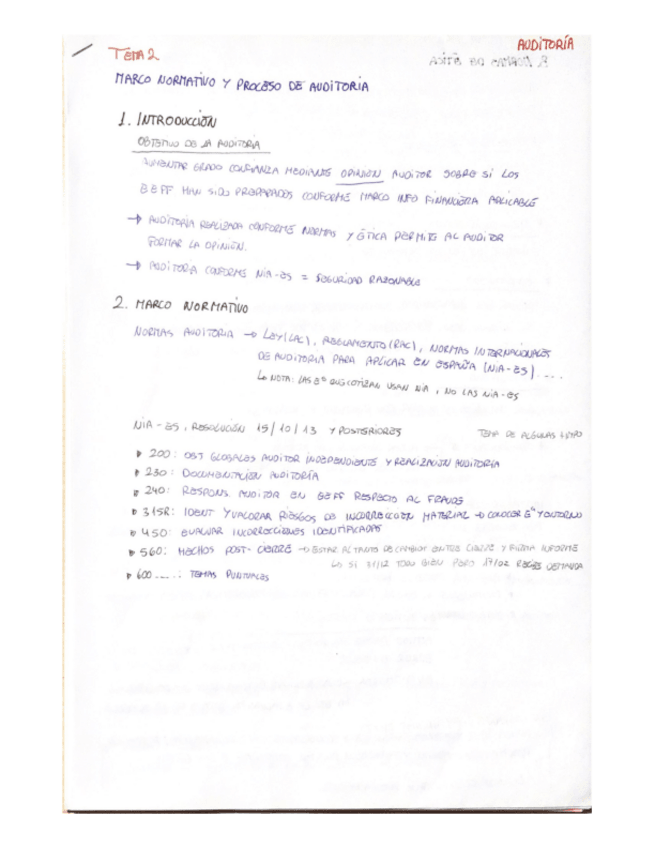 AUDITORÍA
TEMA 2
MARCO NORMATIVO Y PROCESO DE AUDITORIA
1. INTRODUCCIÓN
OBJETIVO DE LA AUDITORIA
AUMENTAR GRADO CONFIANZA MEDIANTE OPINIÓN AUDITOR SOBRE SI LOS
EEFF HAN SIDO PREPARADOS CONFORME MARCO INFO FINANCIERA APLICABLE
→ AUDITORÍA REALIZADA CONFORME NORMAS Y ÉTICA PERMITE AL AUDITOR
FORMAR LA OPINIÓN.
→ AUDITORÍA CONFORME NIA-ES = SEGURIDAD RAZONABLE
2. MARCO NORMATIVO
NORMAS AUDITORIA → LEY (LAC), REGLAMENTO (RAC), NORMAS INTERNACIONALES
DE AUDITORIA PARA APLICAR EN ESPAÑA (NIA-ES) ....
↳ NOTA: LAS Eª QUE COTIZAN USAN NIA, NO LAS NIA-ES
NIA-ES, RESOLUCIÓN 15/10/13 Y POSTERIORES
TEMA DE ALGUNAS
200: OBJ GLOBALES AUDITOR INDEPENDIENTE Y REALIZACIÓN AUDITORÍA
230: DOCUMENTACIÓN AUDITORÍA
240: RESPONS. AUDITOR EN EEFF RESPECTO AL FRAUDE
315R: IDENT Y VALORAR RIESGOS DE INCORRECCIÓN MATERIAL → CONOCER Eª Y ENTORNO
450: EVALUAR INCORRECCIONES IDENTIFICADAS
560: HECHOS POST-CIERRE → ESTAR AL TANTO DE CAMBIOS ENTRE CIERRE Y FIRMA INFORME
↳ SI 31/12 TODO BIEN PERO 17/02 RECIBES DEMANDA
600 .....: TEMAS PUNTUALES